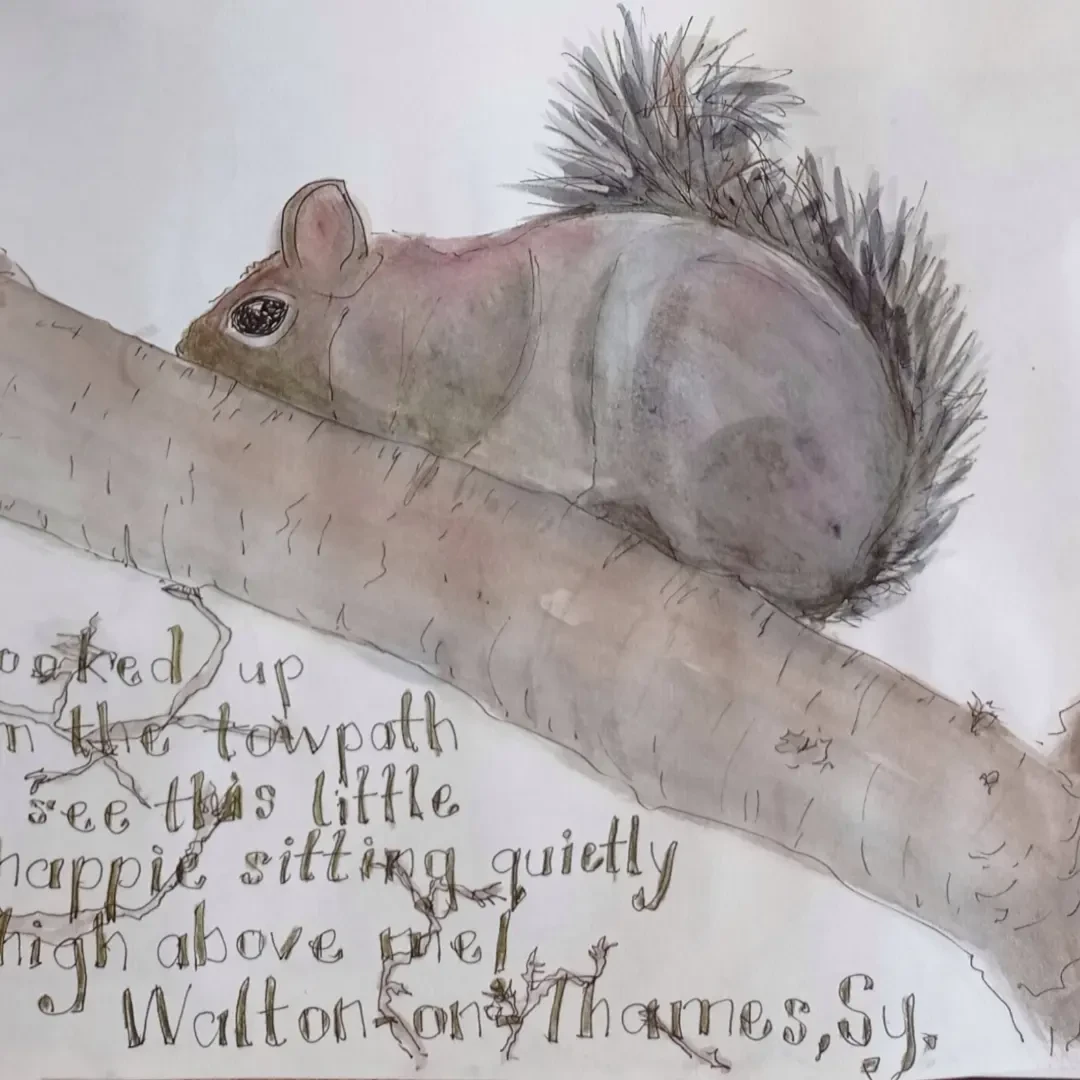 ooked up
n the towpath
see this little
happie sitting quietly
high above me!
Walton-on-Thames, Sy.